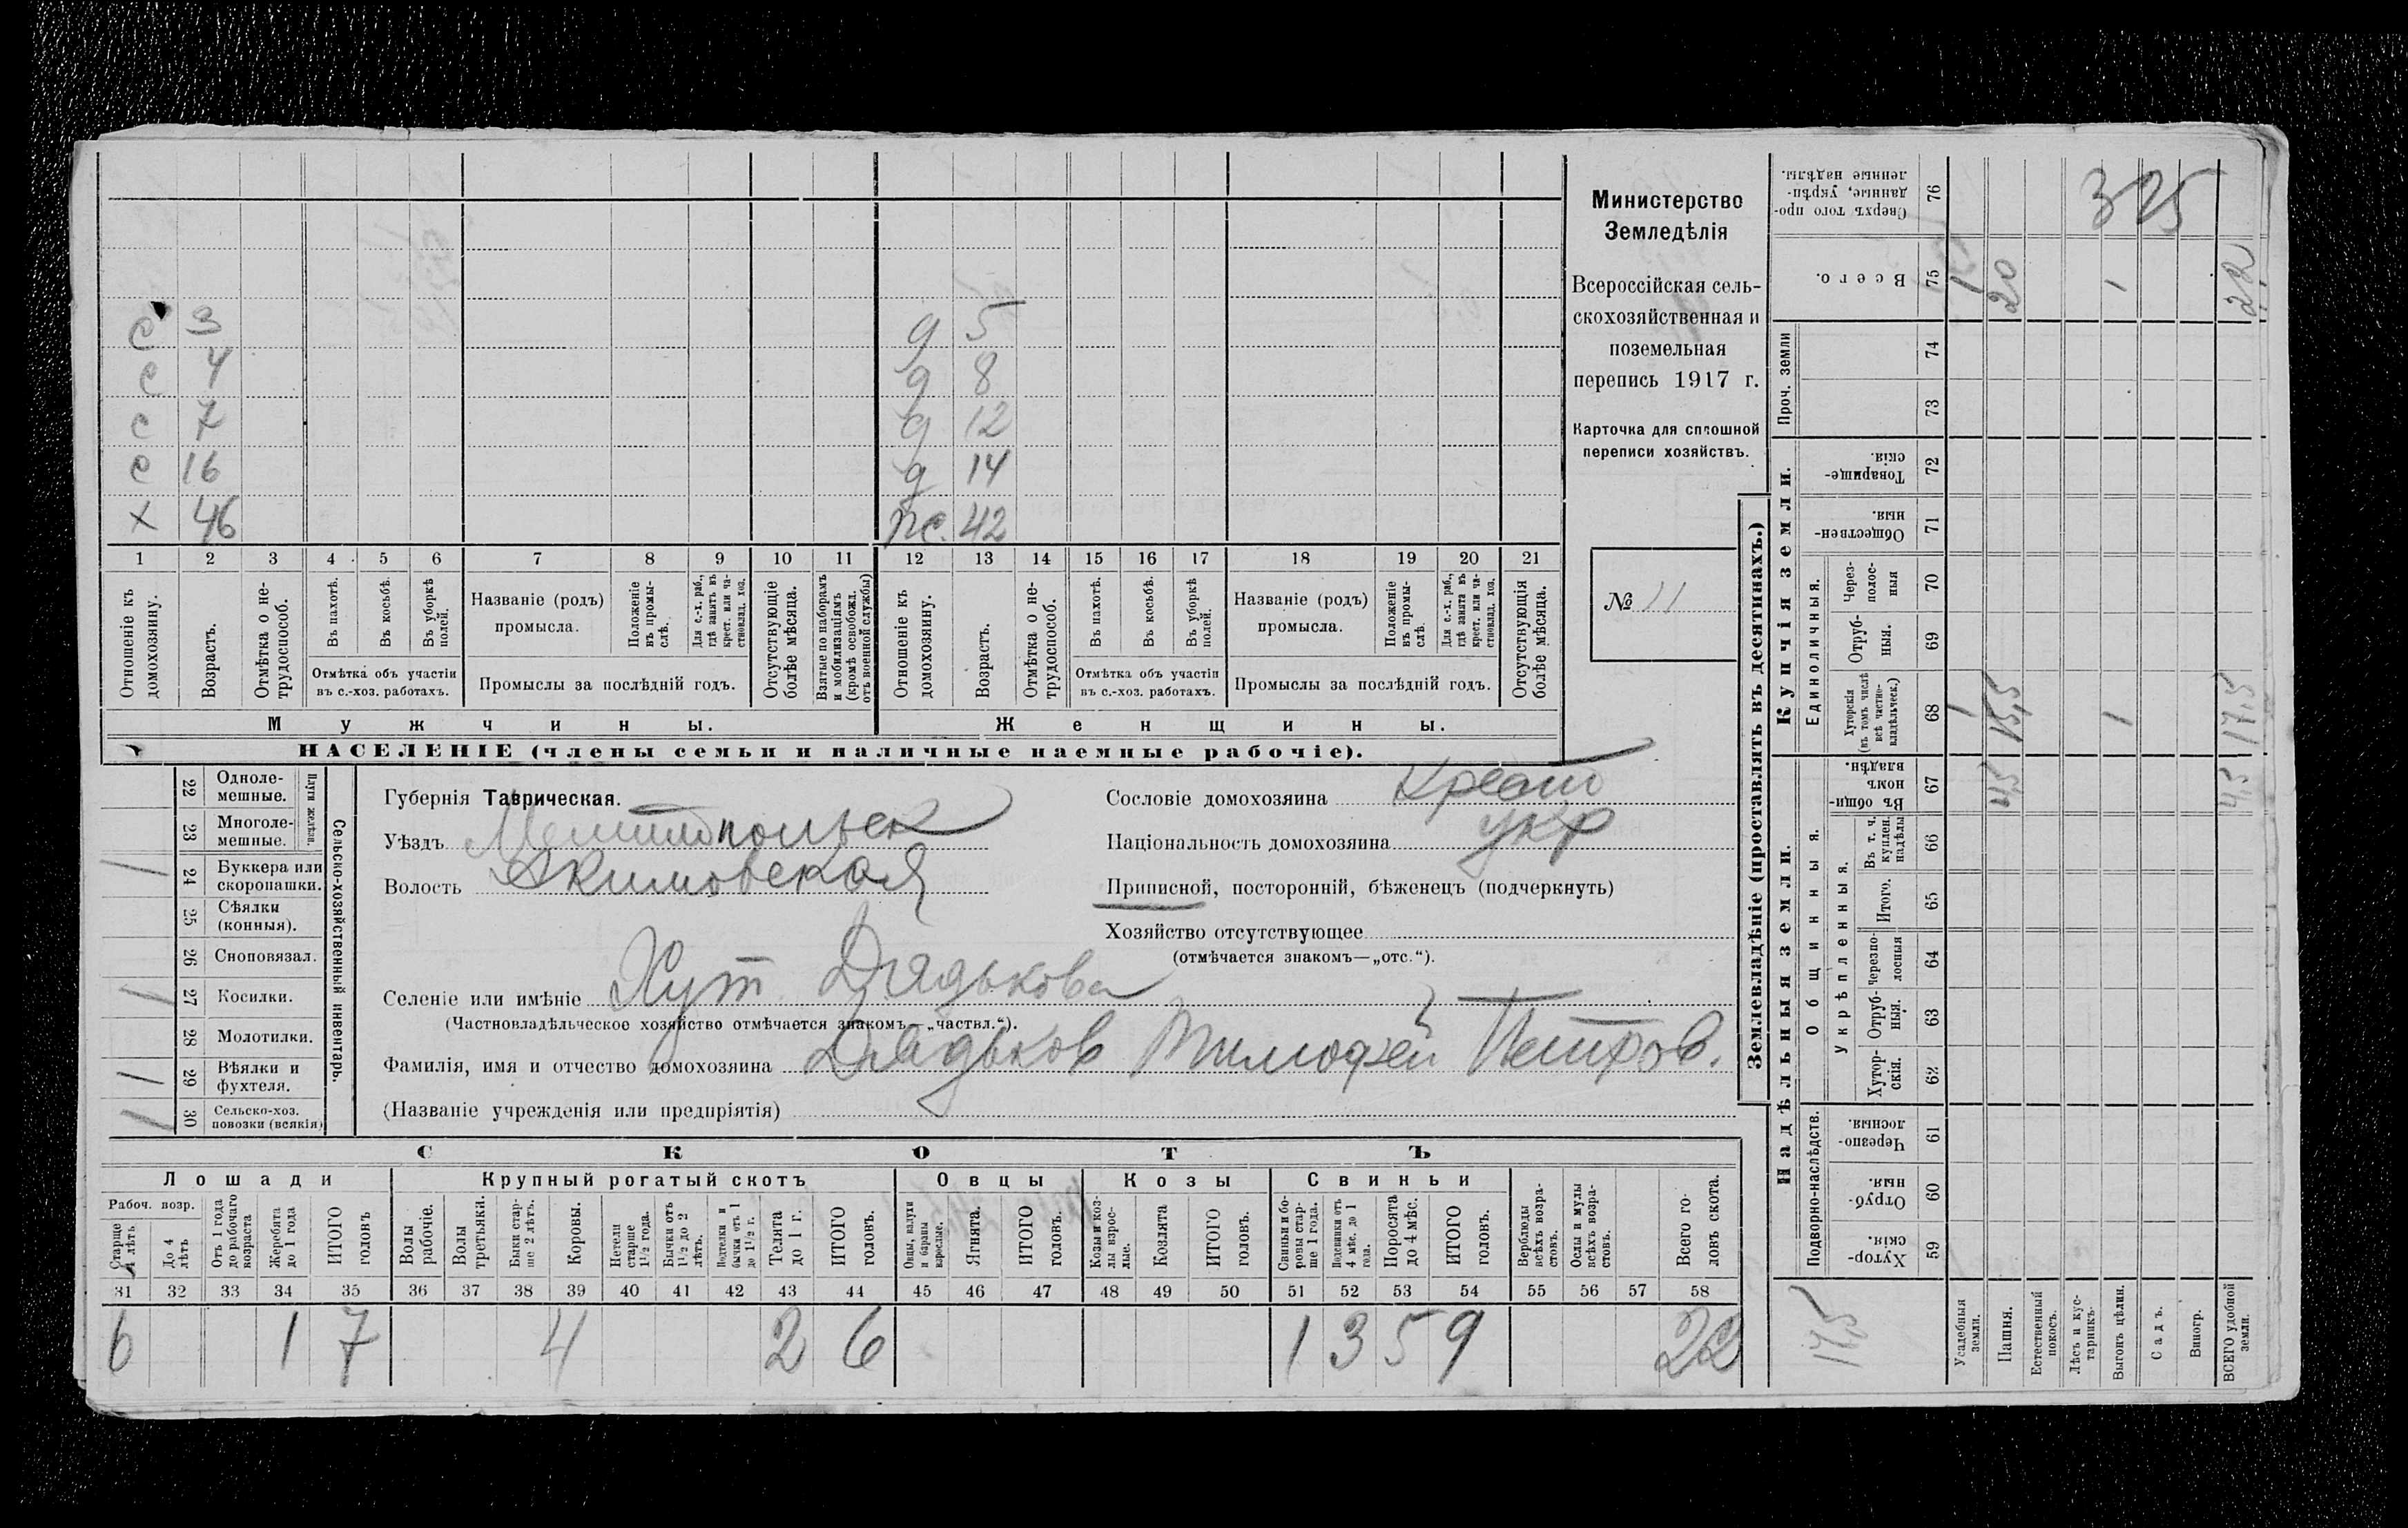 Министерство
Земледѣлія
Всероссійская сель-
скохозяйственная и
поземельная
перепись 1917 г.
Карточка для сплошной
переписи хозяйствъ.
№ 11
с 3
с 4
с 7
с 16
х 46
д 5
д 8
д 12
д 14
ж. 42
1 2 3 4 5 6 7 8 9 10 11 12 13 14 15 16 17 18 19 20 21
Отношеніе къ домохозяину.
Возрастъ.
Отмѣтка о не-трудоспособ.
Въ пахотѣ.
Въ косьбѣ.
Въ уборкѣ полей.
Отмѣтка объ участіи
въ с.-хоз. работахъ.
Названіе (родъ)
промысла.
Положеніе въ промы-слѣ.
Для с.-х. раб., гдѣ занятъ въ крест. или ча-стновлад. хоз.
Промыслы за послѣдній годъ.
Отсутствующіе болѣе мѣсяца.
Взятые по наборамъ и мобилизаціямъ (кромѣ освобожд. отъ военной службы)
Отношеніе къ домохозяину.
Возрастъ.
Отмѣтка о не-трудоспособ.
Въ пахотѣ.
Въ косьбѣ.
Въ уборкѣ полей.
Отмѣтка объ участіи
въ с.-хоз. работахъ.
Названіе (родъ)
промысла.
Положеніе въ промы-слѣ.
Для с.-х. раб., гдѣ занята въ крест. или ча-стновлад. хоз.
Промыслы за послѣдній годъ.
Отсутствующія болѣе мѣсяца.
Мужчины.
Женщины.
НАСЕЛЕНІЕ (члены семьи и наличные наемные рабочіе).
Сельско-хозяйственный инвентарь.
Плуги желѣзн.
22 Одноле-мешные.
23 Многоле-мешные.
1 24 Буккера или скоропашки.
25 Сѣялки (конныя).
26 Сноповязал.
1 27 Косилки.
28 Молотилки.
1 29 Вѣялки и фухтеля.
1 30 Сельско-хоз. повозки (всякія)
Губернія Таврическая.
Уѣздъ Мелитопольск
Волость Акимовская
Сословіе домохозяина Крест
Національность домохозяина укр
Приписной, посторонній, бѣженецъ (подчеркнуть)
Хозяйство отсутствующее
(отмѣчается знакомъ—„отс.“).
Селеніе или имѣніе Хут. Дядькова
(Частновладѣльческое хозяйство отмѣчается знакомъ—„частвл.“).
Фамилія, имя и отчество домохозяина Дядьков Тимофей Петров.
(Названіе учрежденія или предпріятія)
СКОТЪ
Лошади
Крупный рогатый скотъ
Овцы
Козы
Свиньи
Рабоч. возр.
Старше 4 лѣтъ
До 4 лѣтъ
Отъ 1 года до рабочаго возраста
Жеребята до 1 года
ИТОГО головъ
Волы рабочіе.
Волы третьяки.
Быки стар-ше 2 лѣтъ.
Коровы.
Нетели старше 1½ года.
Бычки отъ 1½ до 2 лѣтъ.
Подтелки и бычки отъ 1 до 1½ г.
Телята до 1 г.
ИТОГО головъ.
Овцы, валухи и бараны взрослые.
Ягнята.
ИТОГО головъ.
Козы и коз-лы взрос-лые.
Козлята
ИТОГО головъ.
Свиньи и бо-ровы стар-ше 1 года.
Подсвинки отъ 4 мѣс. до 1 года.
Поросята до 4 мѣс.
ИТОГО головъ.
Верблюды всѣхъ возра-стовъ.
Ослы и мулы всѣхъ возра-стовъ.
Всего го-ловъ скота.
31 32 33 34 35 36 37 38 39 40 41 42 43 44 45 46 47 48 49 50 51 52 53 54 55 56 57 58
6 1 7 4 2 6 1 3 5 9 22
Землевладѣніе (проставлять въ десятинахъ.)
Надѣльныя земли.
Купчія земли.
Проч. земли
Подворно-наслѣдств.
Общинныя.
Укрѣпленныя.
Единоличныя.
Хутор-скія. 59
Отруб-ныя. 60
Черезпо-лосныя. 61
Хутор-скія. 62
Отруб-ныя. 63
Черезпо-лосныя 64
Итого. 65
Въ т. ч. куплен. надѣлы 66
Въ общи-номъ владѣн. 67
Хуторскія (въ томъ числѣ всѣ частно-владѣльческ.) 68
Отруб-ныя. 69
Через-полос-ныя 70
Обществен-ныя. 71
Товарище-скія. 72
73
74
Всего. 75
Сверхъ того про-данные, укрѣп-ленные надѣлы. 76
Усадебная земли.
Пашня.
Естественный покосъ.
Лѣсъ и кус-тарникъ.
Выгонъ цѣлин.
Садъ.
Виногр.
ВСЕГО удобной земли.
17,5
4,5 4,5
1 15,5 1 17,5
1 20 1 22
325